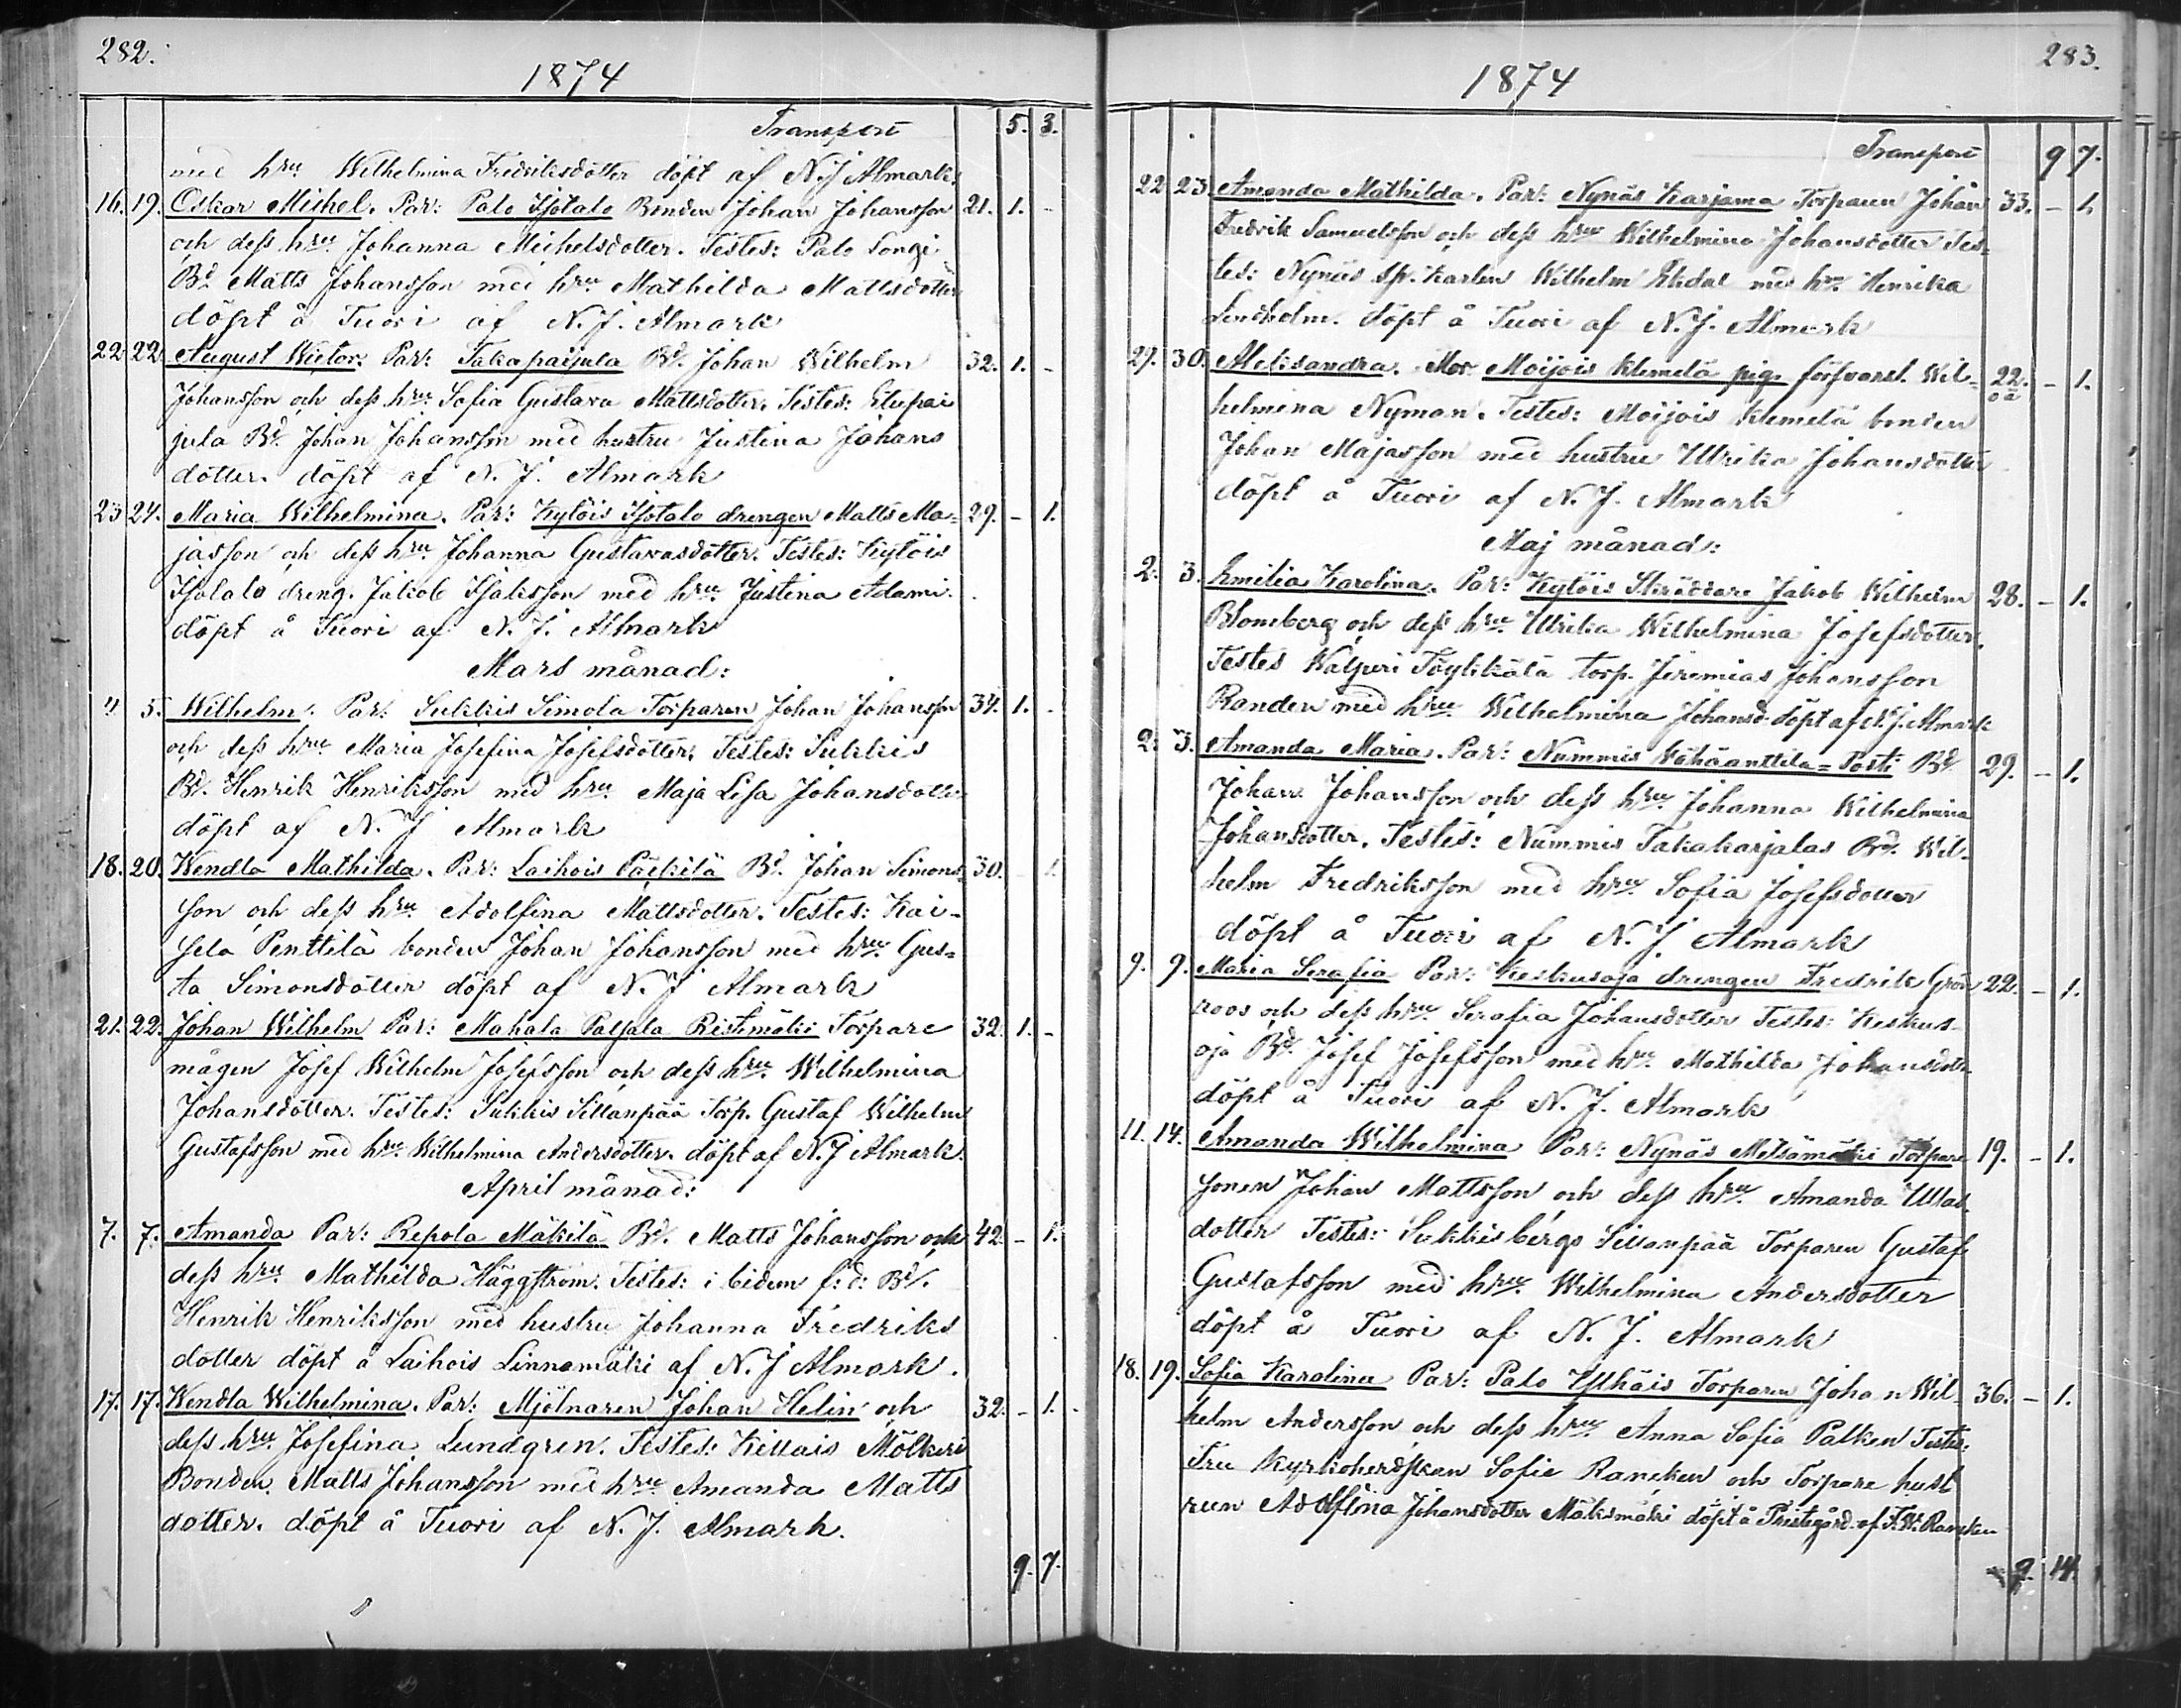 282.
1874
Transport 5. 3.
med hru Wilhelmina Fredriksdotter döpt af N. J Almark.
16. 19. Oskar Mishel. Par: Palo Isotalo Bonden Johan Johansson 21. 1. -
och dess hru Johanna Michelsdotter. Testes: Palo Longi
Bd. Matts Johansson med hru Mathilda Mattsdotter
döpt å Tuori af N. J. Almark
22 22 August Wictor. Par: Takapaijula Bd. Johan Wilhelm 32. 1. -
Johansson och dess hru Sofia Gustava Mattsdotter. Testes: Etupai
jula Bd. Johan Johansson med hustru Justina Johans
dotter. döpt af N. J. Almark
23 24. Maria Wilhelmina. Par: Kylöis Isotalo drengen Matts Ma= 29. - 1.
jasson och dess hru Johanna Gustavasdotter. Testes: Kylöis
Isotalo dreng. Jakob Isaksson med hru Justina Adami.
döpt å Tuori af N. J. Almark
Mars månad:
4 5. Wilhelm. Par: Sukkis Simola Torparen Johan Johansson 34. 1. -
och dess hru Maria Josefina Josefsdotter. Testes: Sukkis
Bd. Henrik Henriksson med hru Maja Lisa Johansdotter
döpt af N. J Almark
18. 20. Wendla Mathilda. Par: Laihois Päkilä Bd. Johan Simons= 30. 1.
son och dess hru Adolfina Mattsdotter. Testes: Kai-
sela Penttilä bonden Johan Johansson med hru Gus=
ta Simonsdotter döpt af N. J Almark
21. 22. Johan Wilhelm Par: Mahala Paljala Ristimäki Torpare 32. 1. -
mågen Josef Wilhelm Josefsson och dess hru Wilhelmina
Johansdotter. Testes: Sukkis Sillanpää Torp. Gustaf Wilhelm
Gustafsson med hru Wilhelmina Andersdotter. döpt af N. J Almark.
April månad:
7. 7. Amanda Par: Repola Mäkilä Bd. Matts Johansson och 42. - 1.
dess hru Mathilda Häggström. Testes: ibidem f:d: Bd.
Henrik Henriksson med hustru Johanna Fredriks
dotter döpt å Laihois Linnamäki af N. J Almark.
17. 17. Wendla Wilhelmina. Par: Mjölnaren Johan Helin och 32. - 1.
dess hru Josefina Lundgren. Testes: Killais Mölkeri
Bonden Matts Johansson med hru Amanda Matts
dotter. döpt å Tuori af N. J. Almark.
9. 7.
283.
1874
Transport 9 7.
22 23 Amanda Mathilda. Par: Nynäs Karjama Torparen Johan 33. - 1.
Fredrik Samuelsson och dess hru Wilhelmina Johansdotter Tes=
tes: Nynäs Sp. karlen Wilhelm Ekdal med hru Henrika
Lindholm. döpt å Tuori af N. J. Almark
29. 30. Aleksandra. Mor Moijois Klemelä pig. försvarsl. Wil= 22. - 1.
helmina Nyman. Testes: Moijois Klemelä bonden oä
Johan Majasson med hustru Ulrika Johansdotter
döpt å Tuori af N. J. Almark
Maj månad:
2. 3. Emilia Karolina. Par: Kylöis Skräddare Jakob Wilhelm 28. - 1.
Blomberg och dess hru Ulrika Wilhelmina Josefsdotter.
Testes Walperi Töylikälä torp. Jeremias Johansson
Randen med hru Wilhelmina Johansd. döpt af N. J. Almark
2. 3. Amanda Maria. Par: Nummis Vähäanttila=Posti Bd. 29. - 1.
Johan Johansson och dess hru Johanna Wilhelmina
Johansdotter. Testes: Nummis Takakarjalas Bd. Wil-
helm Fredriksson med hru Sofia Josefsdotter
döpt å Tuori af N. J. Almark
9. 9. Maria Serafia Par: Keskusoja drengen Fredrik Grön 22. - 1.
roos och dess hru Serafia Johansdotter Testes: Keskus-
oja Bd. Josef Josefsson med hru Mathilda Johansdotter
döpt å Tuori af N. J. Almark
11. 14. Amanda Wilhelmina Par: Nynäs Metsämäki Torpare 19. - 1.
sonen Johan Mattsson och dess hru Amanda
dotter Testes: Sukkisbergs Sillanpää Torparen Gustaf
Gustafsson med hru Wilhelmina Andersdotter
döpt å Tuori af N. J. Almark
18. 19. Sofia Karolina Par: Palo Torparen Johan Wil- 36. - 1.
helm Andersson och dess hru Anna Sofia Palken Testes:
Fru Kyrkoherdskan Sofie Rancken och Torpare hust
run Adolfina Johansdotter Mäksmäki döpt å Prestegård. af F. W. Rancken
9. 14.